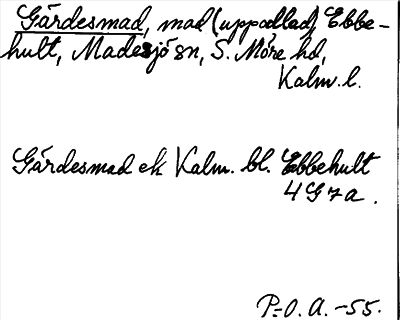 Gärdesmad, mad (uppodlad) Ebbe-
hult, Madesjö sn, S. Möre hd,
Kalm. l.
Gärdesmad ek Kalm. bl. Ebbehult
4G7a.
P.O.A. -55.